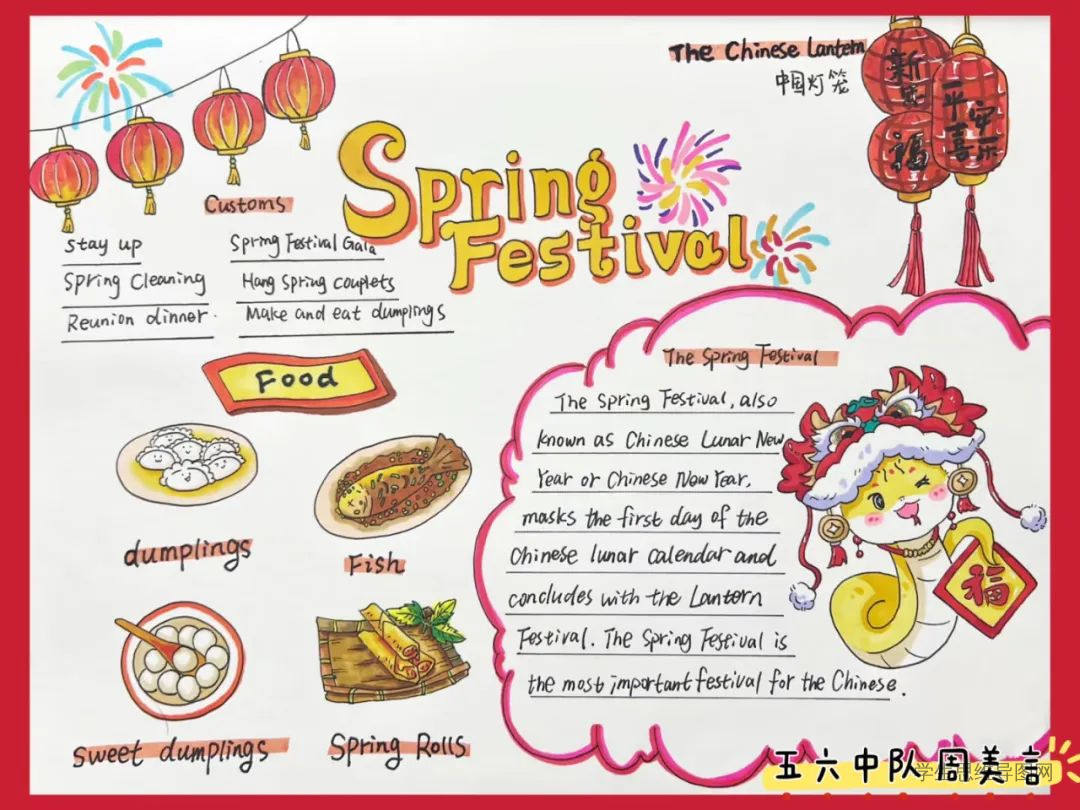 The Chinese Lantern
中国灯笼
新
福
平安
喜乐
Spring
Festival
Customs
stay up
Spring Festival Gala
Spring Cleaning
Hang Spring couplets
Reunion dinner.
Make and eat dumplings
Food
dumplings
Fish
Sweet dumplings
Spring Rolls
The Spring Festival
The Spring Festival, also
known as Chinese Lunar New
Year or Chinese New Year,
masks the first day of the
Chinese lunar calendar and
concludes with the Lantern
Festival. The Spring Festival is
the most important festival for the Chinese.
福
五六中队周美言
学生思维导图网